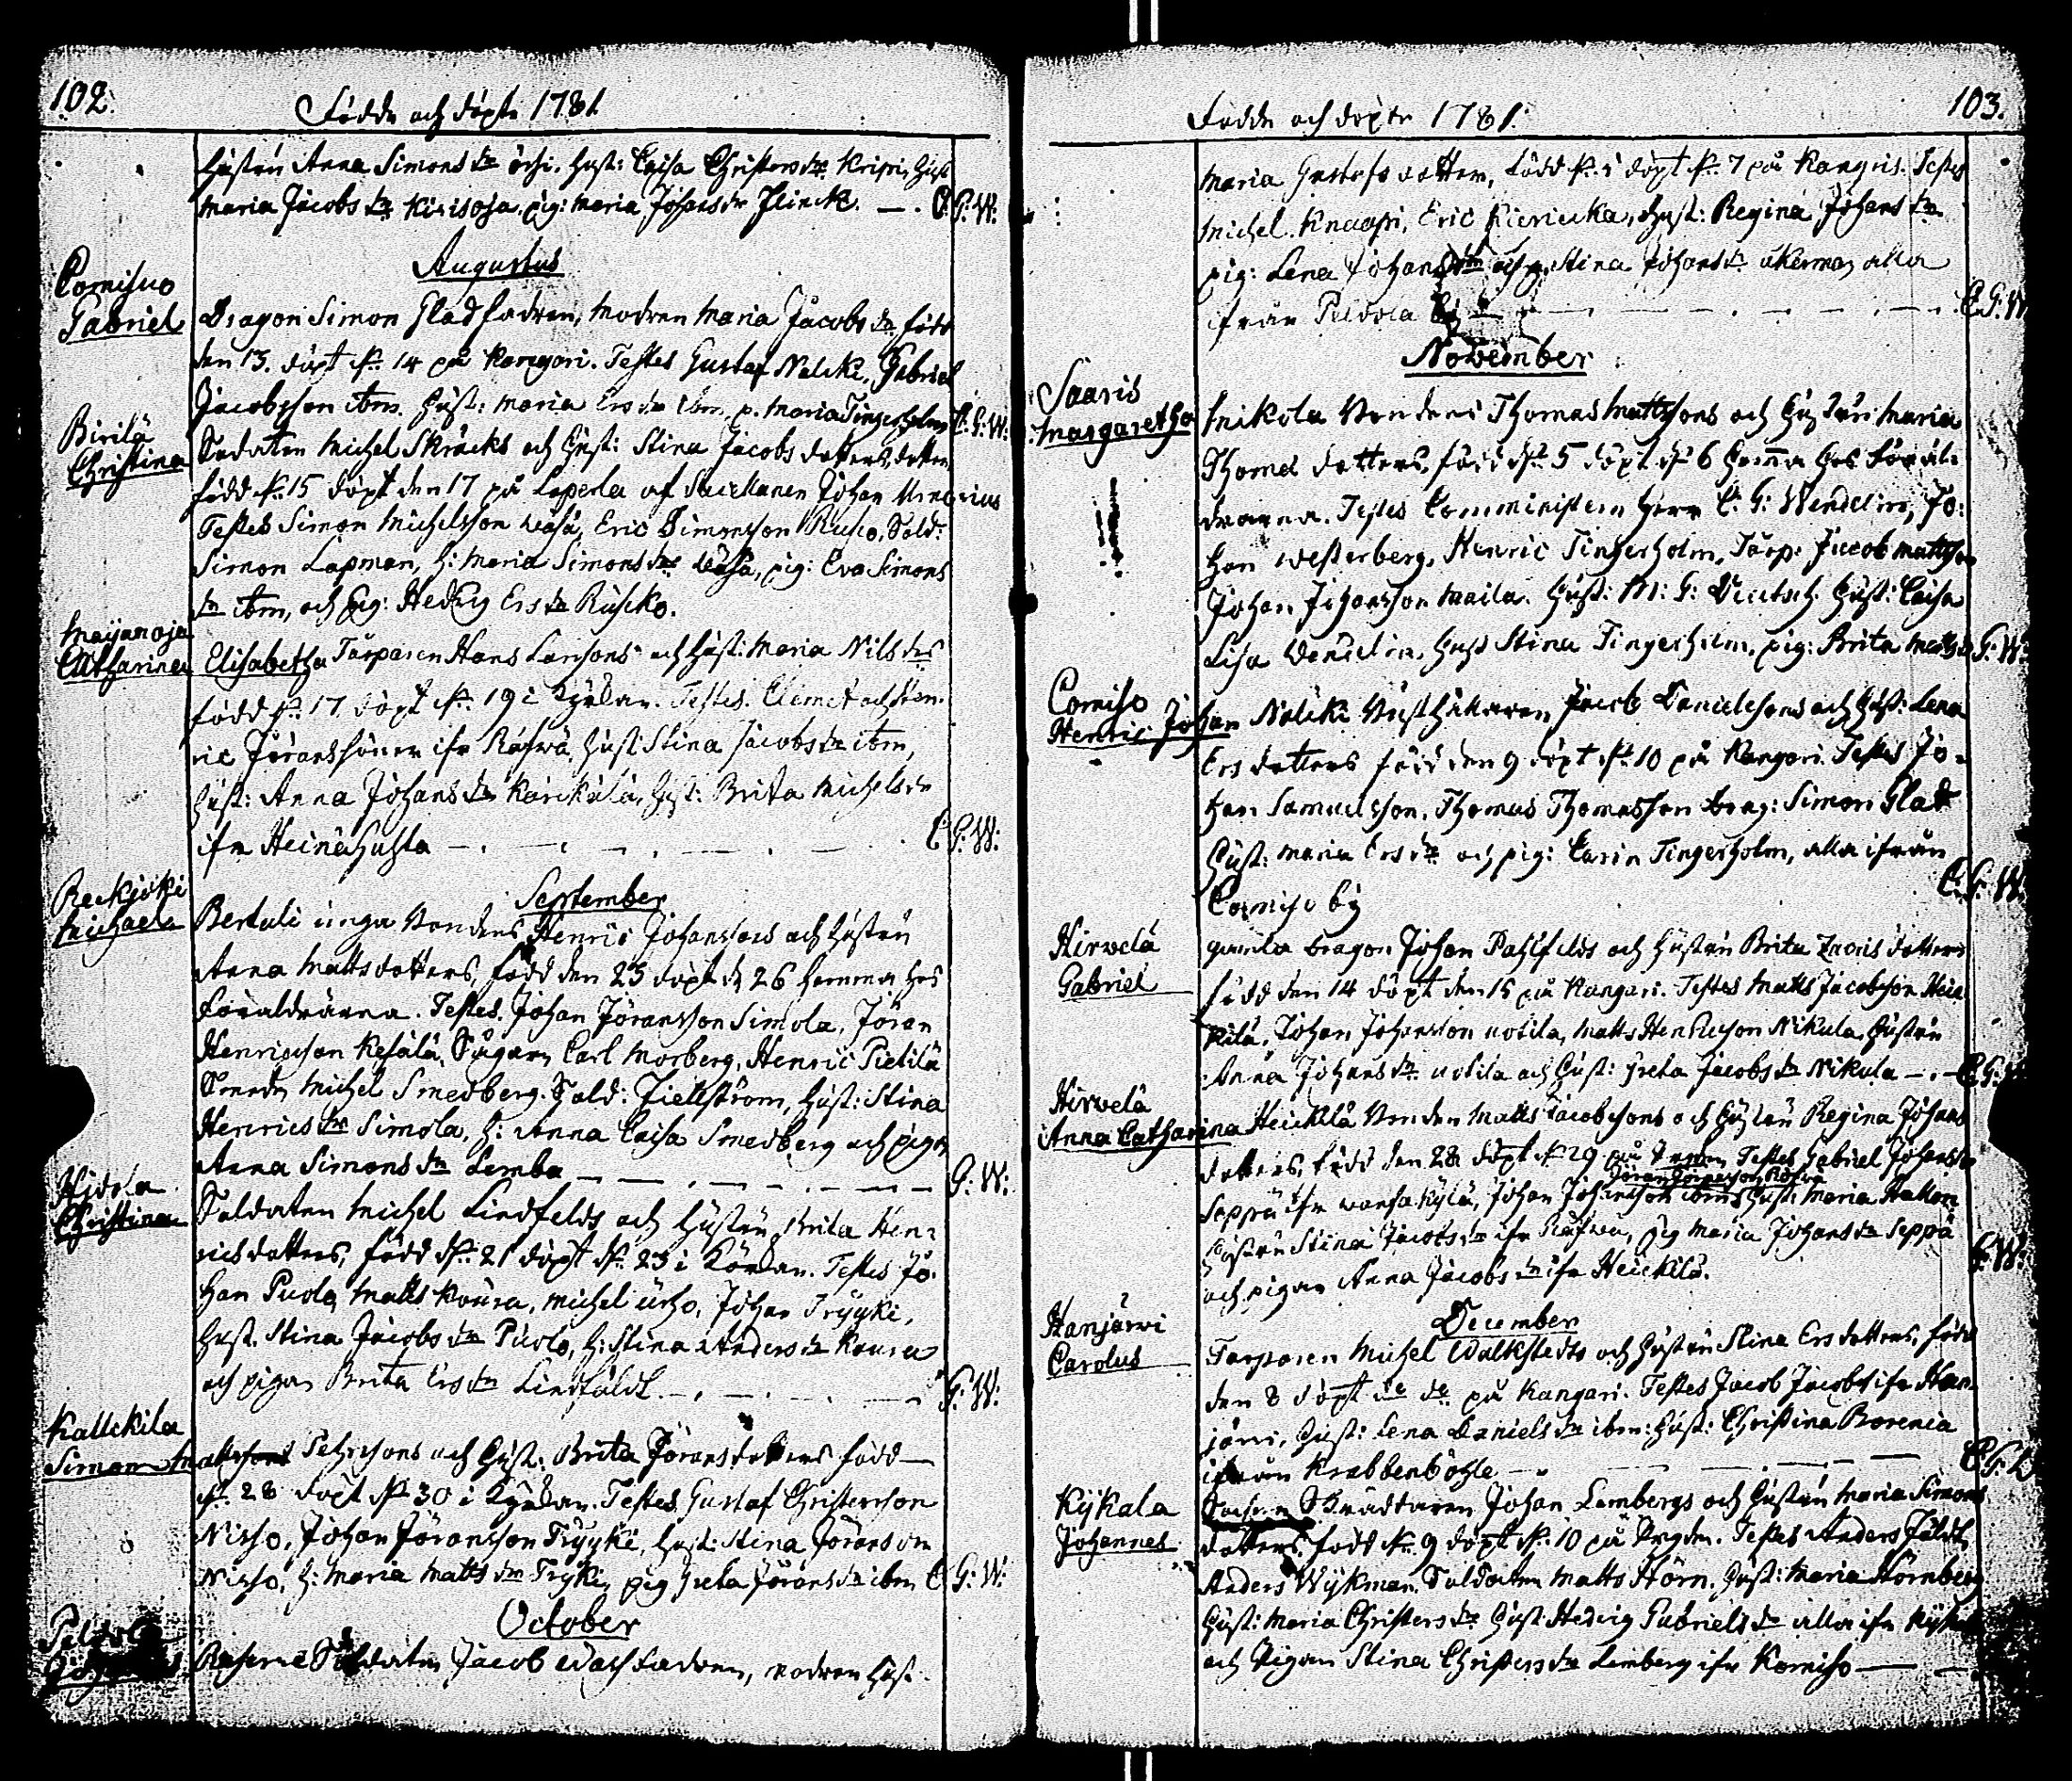 102.
Födde och döpte 1781.
Hustrun Anna Simons dr ibi. Hust: Caisa Christers dr Krispi, Hust
Maria Jacobs dr Kirisoja. pig: Maria Johans dr Flinck. C. G: W:
Augustus
Comisuo
Gabriel
Dragon Simon Glad fadren, modren Maria Jacobs dr född
den 13. döpt dn 14 på Kangari. Testes Gustaf Nalcki, Gabriel
Jacobsson ibm. Hust: Maria Ers dr ibm, p. Maria Tingerholm C: G: W:
Birilä
Christina
Soldaten Michel Skräcks och Hust: Stina Jacobs dotters, dotter
född dn 15 döpt den 17 på Laperla af Johan
Testes Simon Michelsson Wasä, Eric Simonsson Rusko, Sold:
Simon Lapman, h: Maria Simons dr Wäsä, pig: Eva Simons
dr ibm, och pig: Hedvig Ers dr Rusko.
Maijanoja
Catharina Elisabetha Torparen Hans Larssons och Hust: Maria Nils drs
född dn 17. döpt dn 19 i Kyrkan. Testes. Clemet och Hen-
ric Jöranssöner ifr Räfwä, Hust: Stina Jacobs dr ibm,
Hust: Anna Johans dr Kärckälä, Hust: Brita Michels dr
ifr Heinähuhta C: G: W:
September
Reckjoki
Michael
Bertuli unga Bondens Henric Johanssons och hustru
Anna Matts dotters, född den 25 döpt d. 26 hemma hos
Föräldrarna. Testes. Johan Jöransson Simola, Jöran
Henricsson Kesälä, Sågaren Carl Morberg, Henric Pietilä
Smeden Michel Smedberg. Sold: Fiellström, Hust: Stina
Henrics dr Simola, h: Anna Caisa Smedberg och pigan
Anna Simons dr Lemba G: W:
Hjdola
Christina
Soldaten Michel Lindfelds och Hustru Brita Hen-
rics dotters, född dn 21 döpt dn 23 i Körkan. Testes Jo-
han Puola, Matts Koura, Michel Urho, Johan Tryyki,
Hust. Stina Jacobs dr Puolo, h: Stina Anders dr Koura
och pigan Brita Ers dr Lindfäldt. G: W:
Kallckila
Simon Mattssons Pehrssons och Hust: Brita Jörans dotters född
dn 28 döpt dn 30 i Kyrkan. Testes. Gustaf Christersson
Nisso, Johan Jöransson Tryyki, Hust: Stina Jörans dr
Nisso, h: Maria Matts dr Tryki, pig Greta Jörans dr ibm C G: W:
October
Reserve Soldaten Jacob Wass fadren, modren Hust.
103.
Födde och döpte 1781.
Maria Gustafs dotter, född dn 5 döpt dn 7 på Kangris. Testes
Michel Knaapi, Eric Kieriecka, Hust: Regina Johans dr
pig: Lena Johans dr och p. Stina Johans dr Åkerman alla
ifrån Peldola C: G: W
November
Saaris
Margaretha
Mikola Bondens Thomas Mattssons och Hustrun Maria
Thomas dotters, född dn 5 döpt dn 6 hemma hos Föräl-
drarna. Testes Comministern Herr C: G: Wendelin, Jo-
han Westerberg, Henric Tingerholm, Torp: Jacob Mattsson
Johan Johansson Maila. Hust: M: G: Hust: Caisa
Lisa Wendelin, Hust Stina Tingerholm, pig: Brita Matts dr G: W:
Comiso
Henric Johan Nalcki Rusthållaren Jacob Danielssons och Hust: Lena
Ers dotters född den 9 döpt dn 10 på Kangari. Testes Jo-
han Samuelsson, Thomas Thomasson Drag: Simon Glad
Hust: Maria Ers dr och pig: Carin Tingerholm, alla ifrån
Comiso by C: G: W
Hirvelä
Gabriel
gamla Dragon Johan Pahlfelds och Hustrun Brita Enoris dotters
född den 14 döpt den 15 på Kangari. Testes Matts Jacobsson Heic-
kilä, Johan Johansson Uotila, Matts Henricsson Nikula, Hustrun
Anna Johans dr Uotila och Hust: Greta Jacobs dr Nikula C: G:
Hirvelä
Anna Catharina Heickilä Bonden Matts Jacobssons och Hustru Regina Johans
dotters, född den 28 döpt dn 29 på Testes Gabriel Johansson
Jöran Jöransson Räfwä
Seppä ifr Wanhakylä, Johan Johansson ibm, Hust: Maria
Hustru Stina Jacobs dr ifr Räfwä, pig Maria Johans dr Seppä G: W:
och pigan Anna Jacobs dr ifr Heickilä.
December
Hanjärvi
Carolus
Torparen Michel Walkstedts och Hustru Stina Ers dotters, född
den 8 döpt de de på Kangari. Testes Jacob Jacobss ifr Han-
järvi, Hust: Lena Daniels dr ibm: Hust: Christina Borenia
ifrån Krabbenböhle
Kijkala
Johannes
Socken Skräddaren Johan Lembergs och Hustrun Maria Simons
dotters, född dn 9 döpt dn 10 på Testes Anders Fäldt
Anders Wijkman, Soldaten Matts Störn, Hust: Maria Störnberg
Hust: Maria Christers dr Hust Hedvig Gabriels dr alla ifr
och Pigan Stina Christers dr Lemberg ifr Komiso